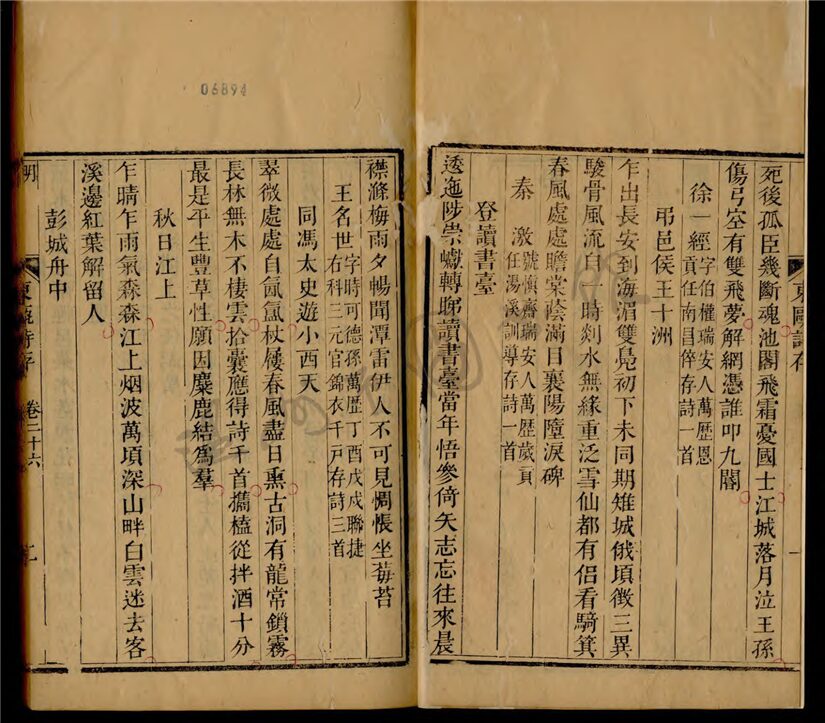 06894
東甌詩存
死後孤臣幾斷魂池閣飛霜憂國士江城落月泣王孫
傷弓空有雙飛夢解網憑誰叩九閽
徐一經字伯權瑞安人萬歷恩
貢任南昌倅存詩一首
弔邑侯王十洲
乍出長安到海湄雙鳧初下未同期雉城俄頃徵三異
駿骨風流自一時剡水無緣重泛雪仙都有侶看騎箕
春風處處瞻棠蔭滿目襄陽墮淚碑
秦激號愼齋瑞安人萬歷歲貢
任湯溪訓導存詩一首
登讀書臺
透迤陟崇巘轉睇讀書臺當年悟參倚矢志忘往來晨
襟滌梅雨夕暢聞潭雷伊人不可見惆悵坐莓苔
王名世字時可德孫萬歷丁酉戊戌聯捷
右科三元官錦衣千戸存詩三首
同馮太史遊小西天
翠微處處自氤氳杖屨春風盡日熏古洞有龍常鎖霧
長林無木不棲雲拾囊應得詩千首攜榼從拌酒十分
最是平生豐草性願因麋鹿結爲羣
秋日江上
乍晴乍雨氣森森江上烟波萬頃深山畔白雲迷去客
溪邊紅葉解留人
彭城舟中
明
東甌詩存
卷二十六
二